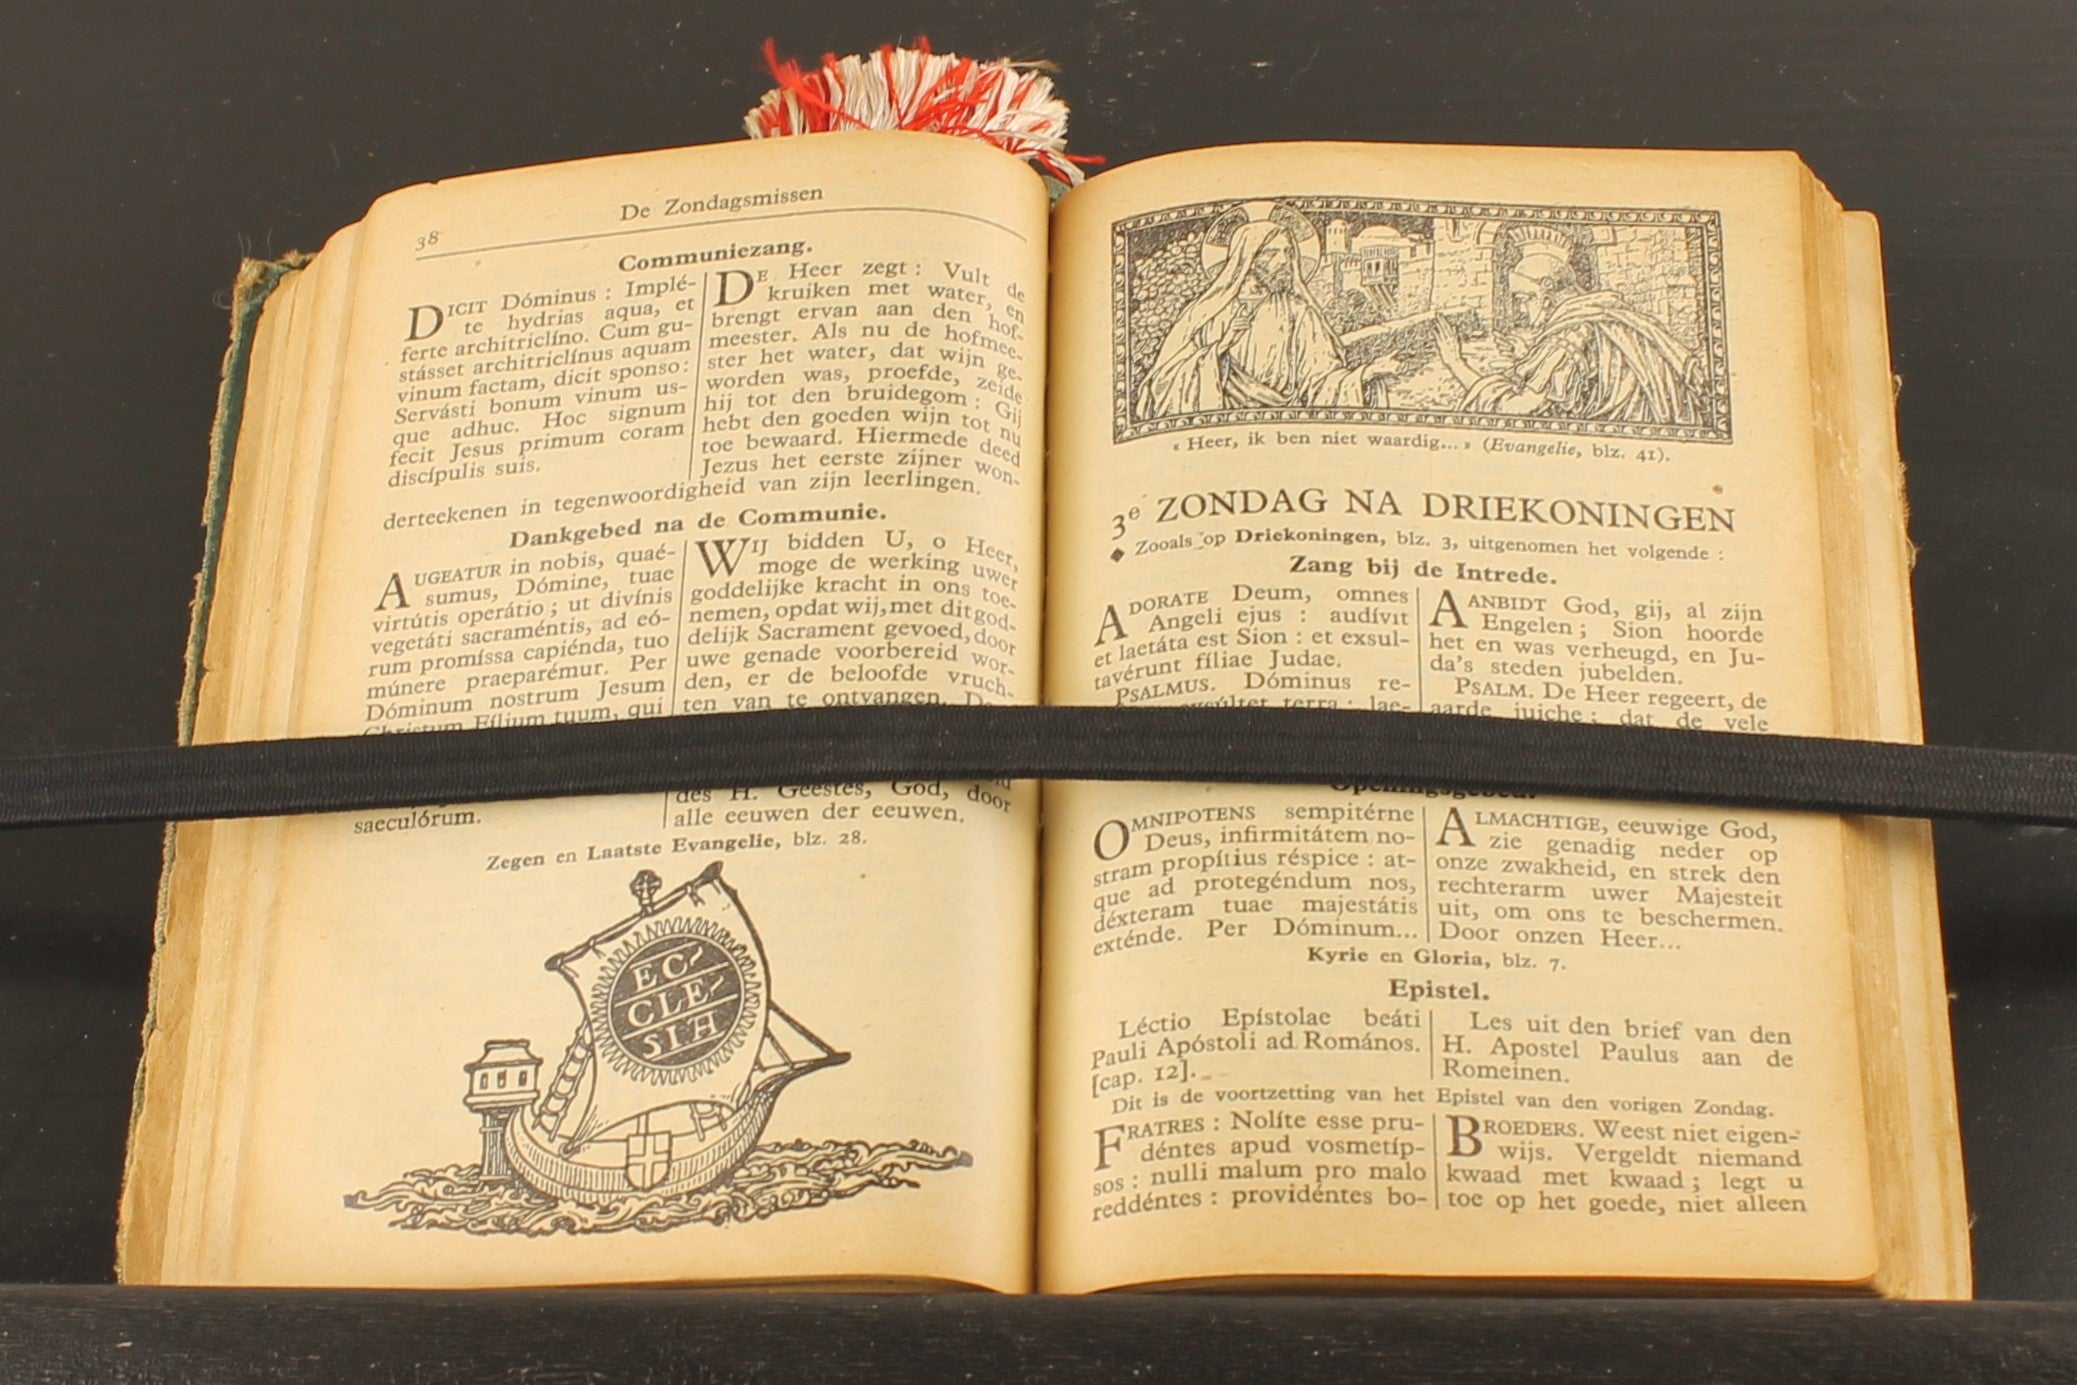 38
De Zondagsmissen
Communiezang.
DICIT Dóminus : Implé-
te hydrias aqua, et
ferte architriclíno. Cum gu-
stásset architriclínus aquam
vinum factam, dicit sponso:
Servásti bonum vinum us-
que adhuc. Hoc signum
fecit Jesus primum coram
discípulis suis.
DE Heer zegt : Vult de
kruiken met water, en
brengt ervan aan den hof-
meester. Als nu de hofmee-
ster het water, dat wijn ge-
worden was, proefde, zeide
hij tot den bruidegom : Gij
hebt den goeden wijn tot nu
toe bewaard. Hiermede deed
Jezus het eerste zijner won-
derteekenen in tegenwoordigheid van zijn leerlingen.
Dankgebed na de Communie.
AUGEATUR in nobis, quaé-
sumus, Dómine, tuae
virtútis operátio ; ut divínis
vegetáti sacraméntis, ad eó-
rum promíssa capiénda, tuo
múnere praeparémur. Per
Dóminum nostrum Jesum
Christum Fílium tuum, qui
saeculórum.
WIJ bidden U, o Heer,
moge de werking uwer
goddelijke kracht in ons toe-
nemen, opdat wij, met dit god-
delijk Sacrament gevoed, door
uwe genade voorbereid wor-
den, er de beloofde vruch-
ten van te ontvangen.
des H. Geestes, God, door
alle eeuwen der eeuwen.
Zegen en Laatste Evangelie, blz. 28.
EC-
CLE-
SIA
« Heer, ik ben niet waardig... » (Evangelie, blz. 41).
3e ZONDAG NA DRIEKONINGEN
◆ Zooals op Driekoningen, blz. 3, uitgenomen het volgende :
Zang bij de Intrede.
ADORATE Deum, omnes
Angeli ejus : audívit
et laetáta est Sion : et exsul-
tavérunt fíliae Judae.
PSALMUS. Dóminus re-
exsúltet terra : lae-
AANBIDT God, gij, al zijn
Engelen ; Sion hoorde
het en was verheugd, en Ju-
da's steden jubelden.
PSALM. De Heer regeert, de
aarde juiche ; dat de vele
Openingsgebed.
OMNIPOTENS sempitérne
Deus, infirmitátem no-
stram propítius réspice : at-
que ad protegéndum nos,
déxteram tuae majestátis
exténde. Per Dóminum...
ALMACHTIGE, eeuwige God,
zie genadig neder op
onze zwakheid, en strek den
rechterarm uwer Majesteit
uit, om ons te beschermen.
Door onzen Heer...
Kyrie en Gloria, blz. 7.
Epistel.
Léctio Epístolae beáti
Pauli Apóstoli ad Romános.
[cap. 12].
Les uit den brief van den
H. Apostel Paulus aan de
Romeinen.
Dit is de voortzetting van het Epistel van den vorigen Zondag.
FRATRES : Nolíte esse pru-
déntes apud vosmetíp-
sos : nulli malum pro malo
reddéntes : providéntes bo-
BROEDERS. Weest niet eigen-
wijs. Vergeldt niemand
kwaad met kwaad ; legt u
toe op het goede, niet alleen